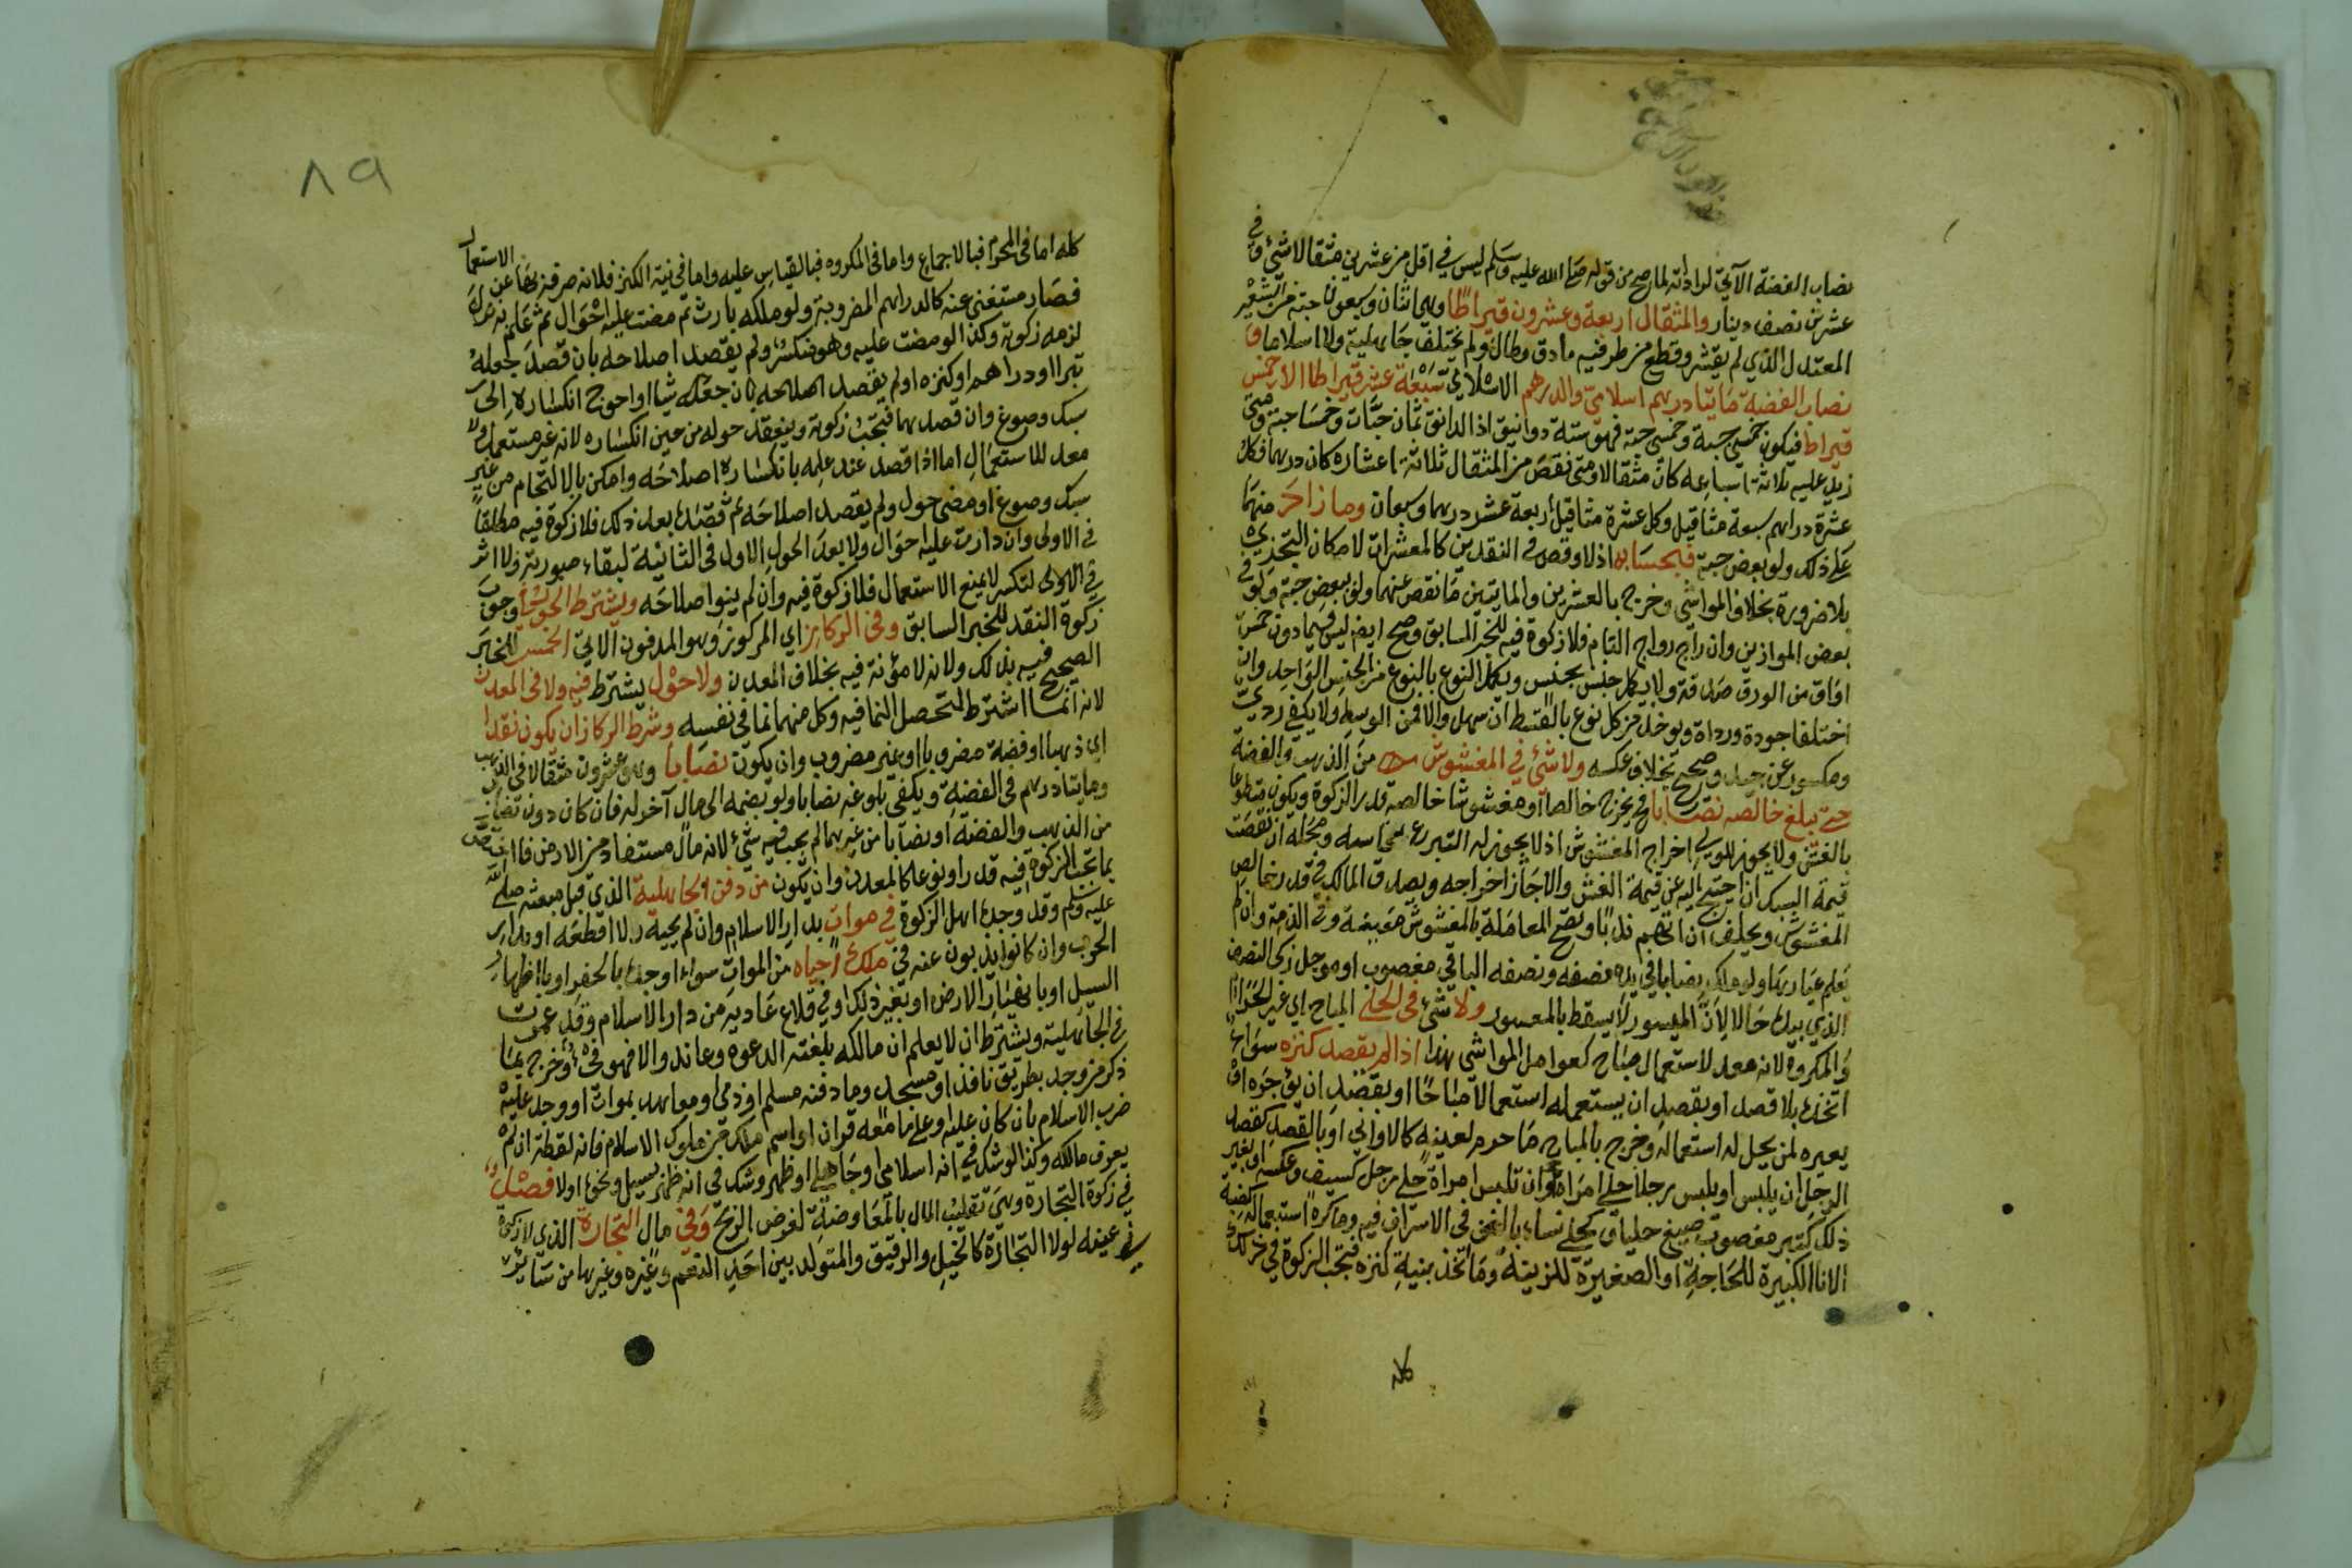 نصاب الفضة الآتي لرادته لما صح من قوله صلى الله عليه وسلم ليس في اقل من عشرين مثقالا شئ وفي
عشرين نصف دينار والمثقال اربعة وعشرون قيراطا وهي اثنان وسبعون حبة من الشعير
المعتدل الذي لم يقشر وقطع من طرفيه ما دق وطال ولم يختلف جاهلية ولا اسلاما و
نصاب الفضة مائتا درهم اسلامي والدرهم الاسلامي سبعة عشر قيراطا الا خمس
قيراط فيكون خمسي حبة وخمسين حبة فهو ستة دوانيق اذ الدانق ثمان حبات وخمسا حبة ومتى
زيد عليه ثلاثة اسباعه كان مثقالا ومتى نقص من المثقال ثلاثة اعشاره كان درهما فكل
عشرة دراهم سبعة مثاقيل وكل عشرة مثاقيل اربعة عشر درهما وسبعان وما زاد منهما
على ذلك ولو بعض حبة فبحسابه اذ لا وقص في النقدين كالمعشرات لامكان التجزي
بلا ضرورة بخلاف المواشي وخرج بالعشرين والمايتين ما نقص عنهما ولو بعض حبة ولو في
بعض الموازين وان راج رواج التام فلا زكوة فيه للخبر السابق وصح ايضا ليس فيما دون خمس
اواق من الورق صدقة ولا يكمل جنس بجنس ويكمل النوع بالنوع من الجنس الواحد وان
اختلفا جودة ورداة ويوخذ من كل نوع بالقسط ان سهل والا فمن الوسط ولا يكفي ردي
ومكسور عن جيد وصحيح بخلاف عكسه ولا شئ في المغشوش من الذهب والفضة
حتى يبلغ خالصه نصابا فيخرج خالصا او مغشوشا خالصه قدر الزكوة ويكون متطوعا
بالغش ولا يجوز للولي اخراج المغشوش اذ لا يجوز له التبرع بنحاسه ومحله ان نقصت
قيمة السبك ان احتيج اليه عن قيمة الغش والا جاز اخراجه ويصدق المالك في قدر خالص
المغشوش ويحلف ان اتهم ندبا وتصح المعاملة بالمغشوش معينة وفي الذمة وان لم
يعلم عيارها ولو ملك نصابا في يده نصفه ونصفه الباقي مغصوب او موجل زكى النصف
الذي بيده حالا لان الميسور لا يسقط بالمعسور ولا شئ في الحلي المباح اي غير الحرام
والمكروه لانه معد لاستعمال مباح كعوامل المواشي هذا اذا لم يقصد كنزه سواء
اتخذه بلا قصد او بقصد ان يستعمله استعمالا مباحا او بقصد ان يؤجره او
يعيره لمن يحل له استعماله وخرج بالمباح ما حرم لعينه كالاواني او بالقصد كقصد
الرجل ان يلبس او يلبس رجلا حلي امراة او ان تلبس امراة حلي رجل كسيف وعكسه او بغير
ذلك كتبر مغصوب صيغ حليا وكحلي نساء بالغن في الاسراف فيه وما كره استعماله كضبة
الاناء الكبيرة للحاجة او الصغيرة للزينة وما اتخذ بنية كنزه فتجب الزكوة في ذلك
كله
٨٩
كله اما في المحرم فبالاجماع واما في المكروه فبالقياس عليه واما في نية الكنز فلانه صرفه بها عن الاستعمال
فصار مستغنى عنه كالدراهم المضروبة ولو ملكه بارث ثم مضت عليه احوال ثم علم به
لزمه زكوته وكذا لو مضت عليه وهو منكسر ولم يقصد اصلاحه بان قصد جعله
تبرا او دراهم او كنزه او لم يقصد اصلاحه بان جعله شيا او احوج انكساره الى
سبك وصوغ وان قصدهما فتجب زكوته وينعقد حوله من حين انكساره لانه غير مستعمل ولا
معد للاستعمال اما اذا قصد عند علمه بانكساره اصلاحه وامكن بالالتحام من غير
سبك وصوغ او مضى حول ولم يقصد اصلاحه ثم قصده بعد ذلك فلا زكوة فيه مطلقا
في الاولى وان دارت عليه احوال ولا بعد الحول الاول في الثانية لبقاء صورته ولا اثر
في الاولى لتكسر لا يمنع الاستعمال فلا زكوة فيه وان لم ينو اصلاحه ويشترط الحول في وجوب
زكوة النقد للخبر السابق وفي الركاز اي المركوز وهو المدفون الاتي الخمس للخبر
الصحيح فيه بذلك ولانه لا مؤنة فيه بخلاف المعدن ولا حول يشترط فيه ولا في المعدن
لانه انما اشترط لتحصل النما فيه وكل منهما نما في نفسه وشرط الركاز ان يكون نقدا
اي ذهبا او فضة مضروبا او غير مضروب وان يكون نصابا وهو عشرون مثقالا في الذهب
ومايتا درهم في الفضة ويكفي بلوغه نصابا ولو بضمه الى مال آخر له فان كان دون نصاب
من الذهب والفضة او نصابا من غيرهما لم يجب فيه شئ لانه مال مستفاد من الارض فاختص
بما تجب الزكوة فيه قدرا ونوعا كالمعدن وان يكون من دفن الجاهلية الذي قبل مبعثه صلى الله
عليه وسلم وقد وجده اهل الزكوة في موات بدار الاسلام وان لم يحيه ولا اقطعه او بدار
الحرب وان كانوا يذبون عنه في ملك احياه من الموات سواء اوجده بالحفر او باظهار
السيل او بانهيار الارض او بغير ذلك او في قلاع عادية من دار الاسلام وقد عمرت
في الجاهلية ويشترط ان لا يعلم ان مالكه بلغته الدعوة وعاند والا فهو فئ وخرج بما
ذكر من وجد بطريق نافذ او مسجد وما دفنه مسلم او ذمي او معاهد بموات او وجد عليه
ضرب الاسلام بان كان عليه وعلى ما معه قران او اسم ملك من ملوك الاسلام فانه لقطة ان لم
يعرف مالكه وكذا لو شك في انه اسلامي او جاهلي او ظهر وشك في انه ظهر بسيل ونحوه او لا فصل
في زكوة التجارة وهي تقليب المال بالمعاوضة لغرض الربح وفي مال التجارة الذي لا زكوة
في عينه لولا التجارة كالخيل والرقيق والمتولد بين احد النعم وغيره وغيرها من ساير